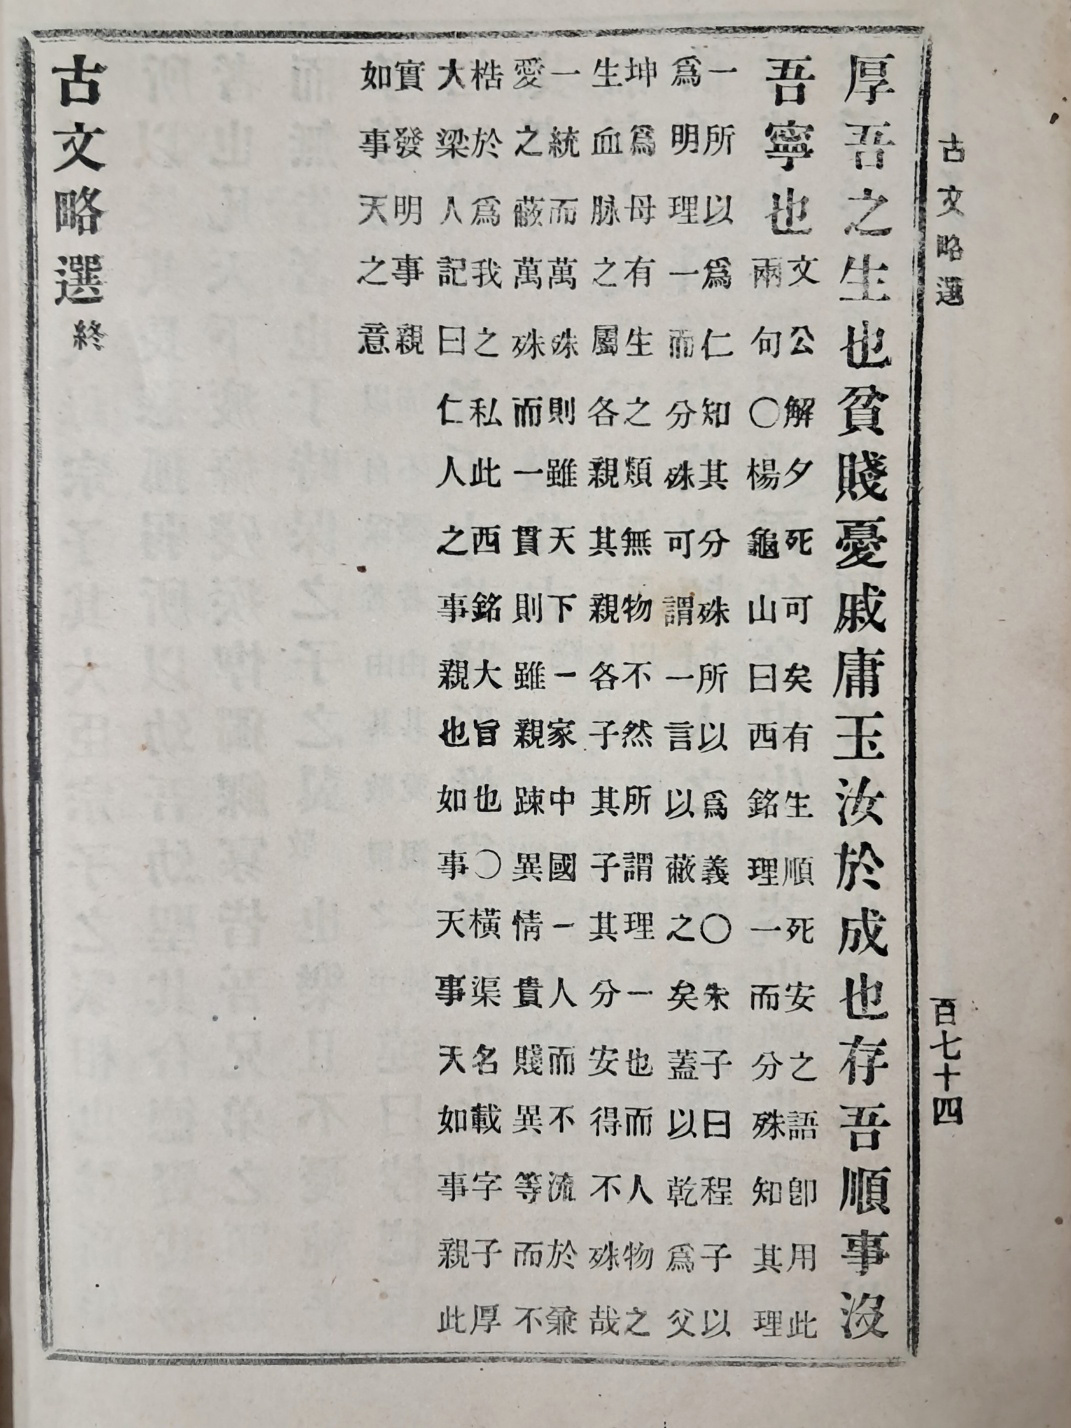 古文略選
百七十四
厚吾之生也貧賤憂戚庸玉汝於成也存吾順事沒
吾寧也
文公解夕死可矣有生順死安之語卽用此
兩句〇楊龜山曰西銘理一而分殊知其理
一所以爲仁知其分殊所以爲義〇朱子曰程子以
爲明理一而分殊可謂一言以蔽之矣蓋以乾爲父
坤爲母有生之類無物不然所謂理一也而人物之
生血脉之屬各親其親各子其子其分安得不殊哉
一統而萬殊則雖天下一家中國一人而不流於兼
愛之蔽萬殊而一貫則雖親踈異情貴賤異等而不
梏於爲我之私此西銘大旨也〇橫渠名載字子厚
大梁人記曰仁人之事親也如事天事天如事親此
實發明事親
如事天之意
古文略選終